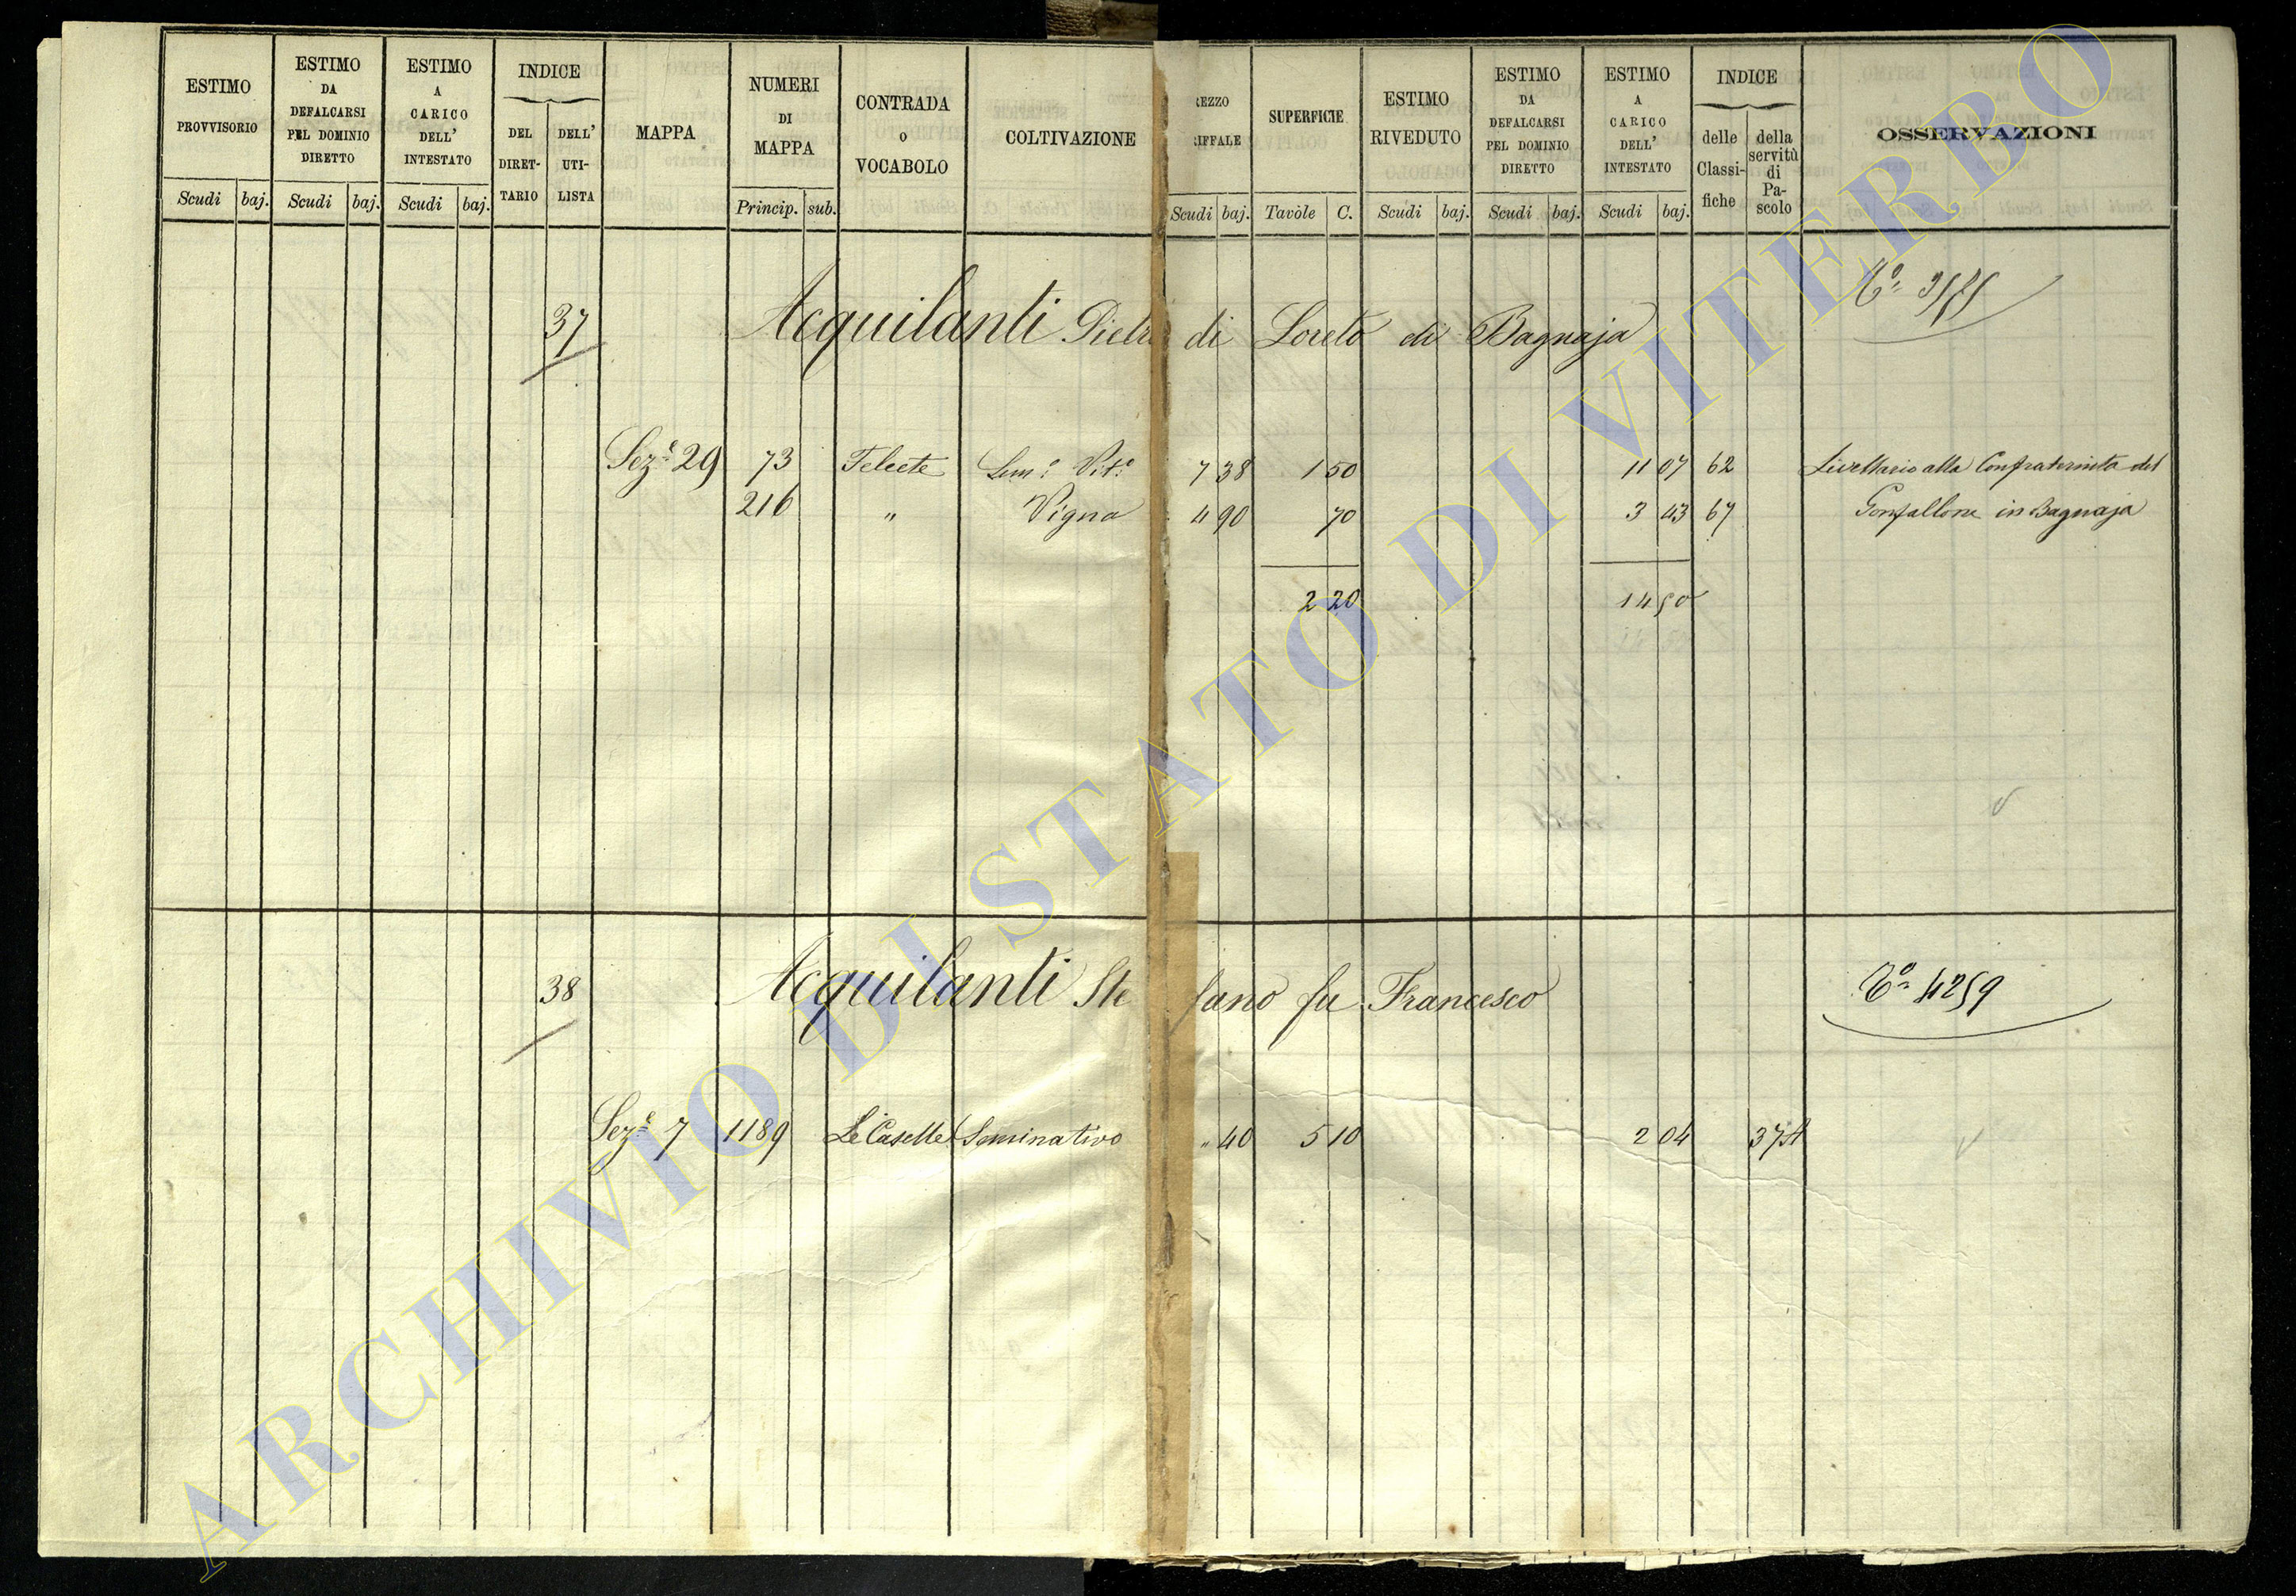 ESTIMO PROVVISORIO
Scudi baj.
ESTIMO DA DEFALCARSI PEL DOMINIO DIRETTO
Scudi baj.
ESTIMO A CARICO DELL' INTESTATO
Scudi baj.
INDICE
DEL DIRET-TARIO
DELL' UTI-LISTA
MAPPA
NUMERI DI MAPPA
Princip. sub.
CONTRADA o VOCABOLO
COLTIVAZIONE
REZZO RIFFALE
Scudi baj.
SUPERFICIE
Tavole C.
ESTIMO RIVEDUTO
Scudi baj.
ESTIMO DA DEFALCARSI PEL DOMINIO DIRETTO
Scudi baj.
ESTIMO A CARICO DELL' INTESTATO
Scudi baj.
INDICE
delle Classi-fiche
della servitù di Pa-scolo
OSSERVAZIONI
37 Acquilanti Pietro di Loreto di Bagnaja
Sez.e 29 73 Telecte Sem.o Vit.o 7 38 1 50 11 07 62 Livellario alla Confraternita del
216 " Vigna 4 90 70 3 43 67 Gonfallone in Bagnaja
2 20 14 50
38 Acquilanti Stefano fu Francesco 4259
Sez.e 7 1189 Le Caselle Seminativo " 40 5 10 2 04
ARCHIVIO DI STATO DI VITERBO